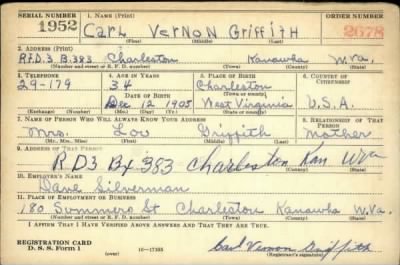 SERIAL NUMBER 1. NAME (Print) ORDER NUMBER
1952 Carl Vernon Griffith 2678
(First) (Middle) (Last)
2. ADDRESS (Print)
R.F.D.3 B.383 Charleston Kanawha W.Va.
(Number and street or R. F. D. number) (Town) (County) (State)
3. TELEPHONE 4. AGE IN YEARS 5. PLACE OF BIRTH 6. COUNTRY OF CITIZENSHIP
29-179 34 Charleston
DATE OF BIRTH (Town or county)
Dec 12 1905 West Virginia U.S.A.
(Exchange) (Number) (Mo.) (Day) (Yr.) (State or country)
7. NAME OF PERSON WHO WILL ALWAYS KNOW YOUR ADDRESS 8. RELATIONSHIP OF THAT PERSON
Mrs. Lou Griffith Mother
(Mr., Mrs., Miss) (First) (Middle) (Last)
9. ADDRESS OF THAT PERSON
R D3 Bx 383 Charleston Kan W va
(Number and street or R. F. D. number) (Town) (County) (State)
10. EMPLOYER'S NAME
Dave Silverman
11. PLACE OF EMPLOYMENT OR BUSINESS
180 Summers St Charleston Kanawha W.Va.
(Number and street or R. F. D. number) (Town) (County) (State)
I AFFIRM THAT I HAVE VERIFIED ABOVE ANSWERS AND THAT THEY ARE TRUE.
REGISTRATION CARD
D. S. S. Form 1 (over) 16-17105 Carl Vernon Griffith
(Registrant's signature)